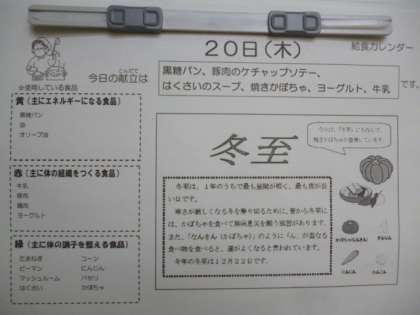 給食カレンダー
20日(木)
こんだて
今日の献立は
黒糖パン、豚肉のケチャップソテー、
はくさいのスープ、焼きかぼちゃ、ヨーグルト、牛乳
です。
※使用している食品
黄(主にエネルギーになる食品)
黒糖パン
油
オリーブ油
赤(主に体の組織をつくる食品)
牛乳
豚肉
鶏肉
ヨーグルト
緑(主に体の調子を整える食品)
たまねぎ コーン
ピーマン にんじん
マッシュルーム パセリ
はくさい かぼちゃ
冬至
冬至は、1年のうちで最も昼間が短く、最も夜が
長い日です。
寒さが厳しくなる冬を乗り切るために、昔から冬至に
は、かぼちゃを食べて無病息災を願う風習があります。
また、「なんきん(かぼちゃ)」のように「ん」が重なる
食べ物を食べると、運がよくなると言われています。
今年の冬至は12月22日です。
今日は、「冬至」にちなんで、